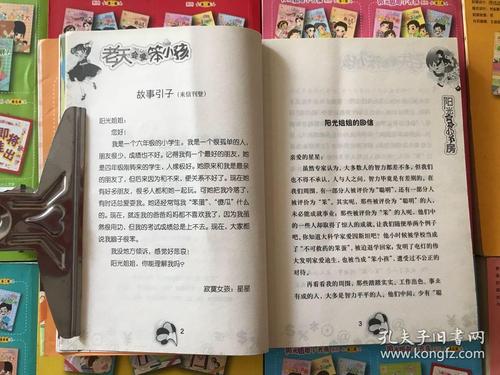 老大的笨小孩
故事引子（来信刊登）
阳光姐姐：
您好！
我是一个六年级的小学生。我是一个很孤单的人，
朋友很少，成绩也不好。记得我有一个最好的朋友，她
是四年级刚转来的学生，人缘极好。她原来和我是最亲
的朋友了，但后来因为和不来，便关系不好了。现在她
有好多朋友，很多人都和她一起玩。可她把我冷落了，
有时还总爱耍我。她还经常骂我“笨蛋”、“傻瓜”什么
的。现在，就连我的爸爸妈妈都不喜欢我了，因为我虽
然很用功，但我的考试成绩总是上不去。现在，大家都
说我脑子很笨。
我没地方倾诉，感觉好悲哀！
阳光姐姐，你能理解我吗？
寂寞女孩：星星
2
阳光姐姐的回信
亲爱的星星：
虽然专家认为，大多数人的智力都差不多，但我们
也不得不承认，人与人之间，智力毕竟是有差别的。在
我们周围，有一部分人被评价为“聪明”，还有一部分人
被评价为“笨”。其实呢，那些被评价为“聪明”的人，
未必能成就事业；那些被评价为“笨”的人呢，他们中
的一些人却取得了惊人的成就。让我们随便举两个例子
吧，你知道大科学家爱因斯坦吧？他小时候被学校当成
了“不可救药的笨蛋”，被迫退学回家，发明了电灯的伟
大发明家爱迪生，也被当成“笨小孩”，遭受过不公正的
对待。
再看看我的周围，那些踏踏实实、工作出色、事业
有成的人，大多是智力平平的人，他们中间，少有“聪
3
阳光姐姐小书房
即将推出
孔夫子旧书网
www.kongfz.com